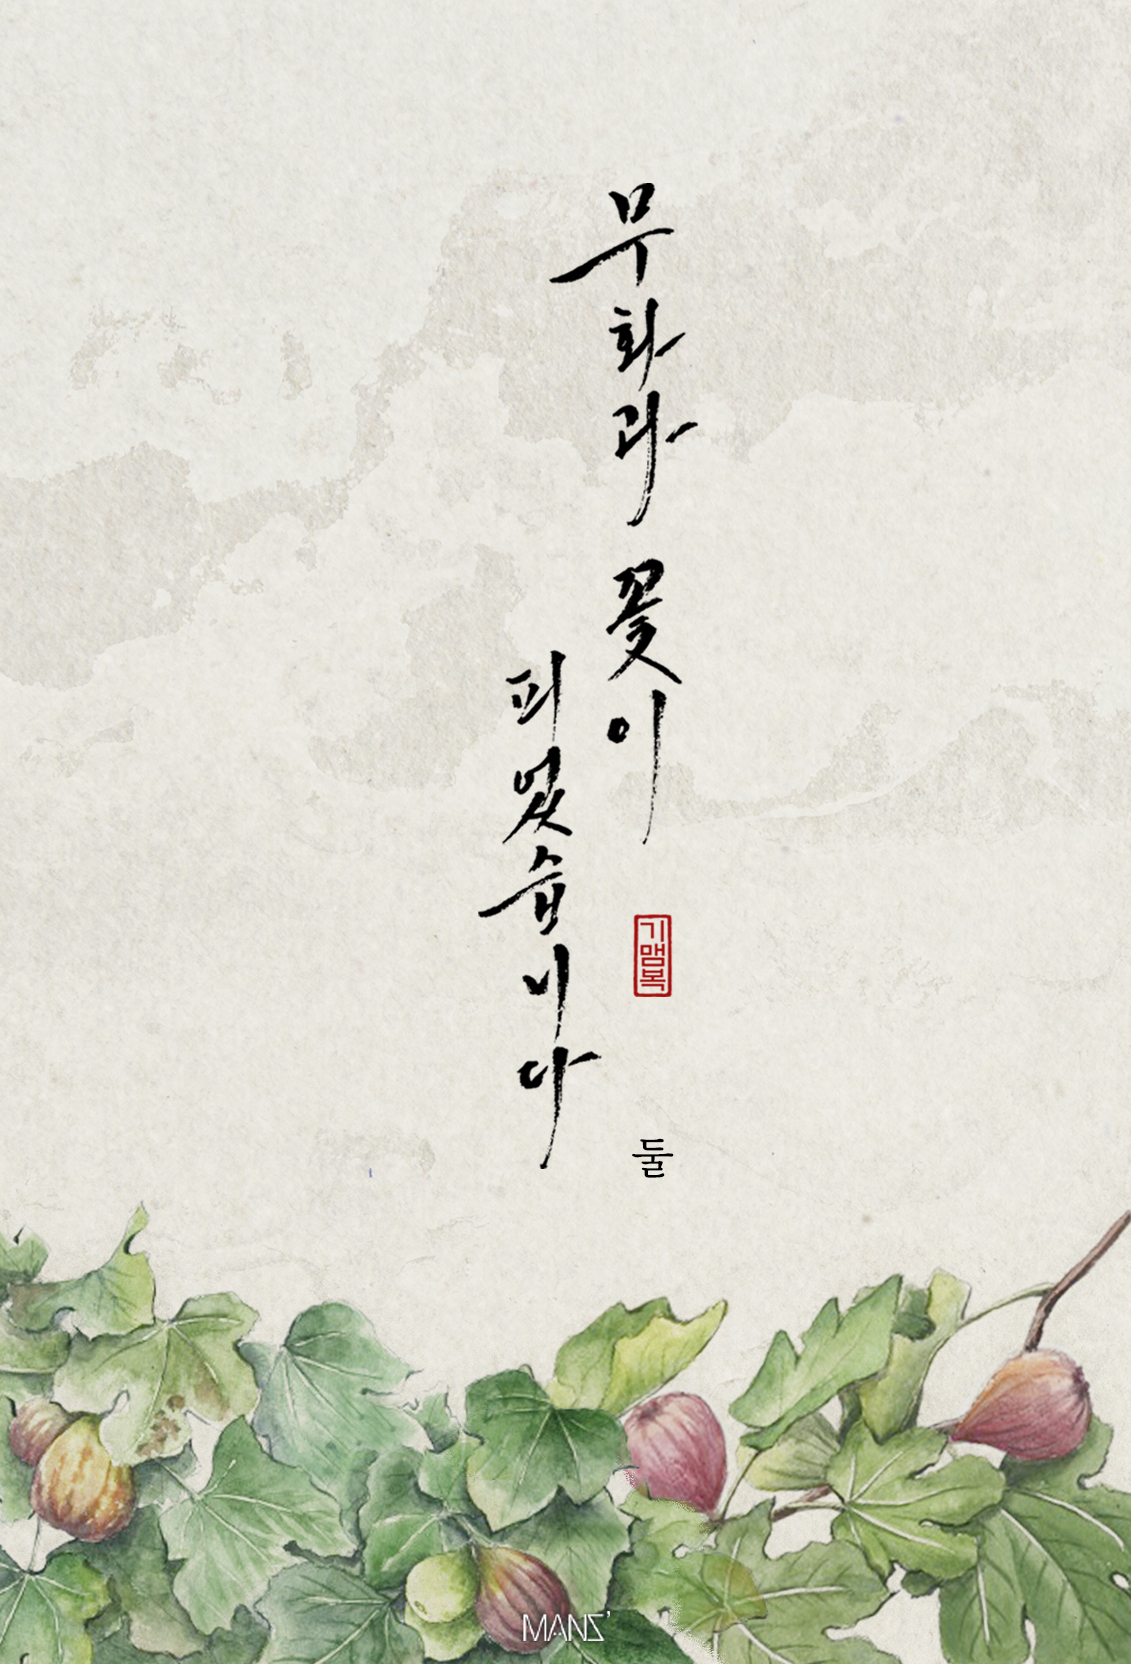 무화과 꽃이
피었습니다
기맴복
둘
MANS'